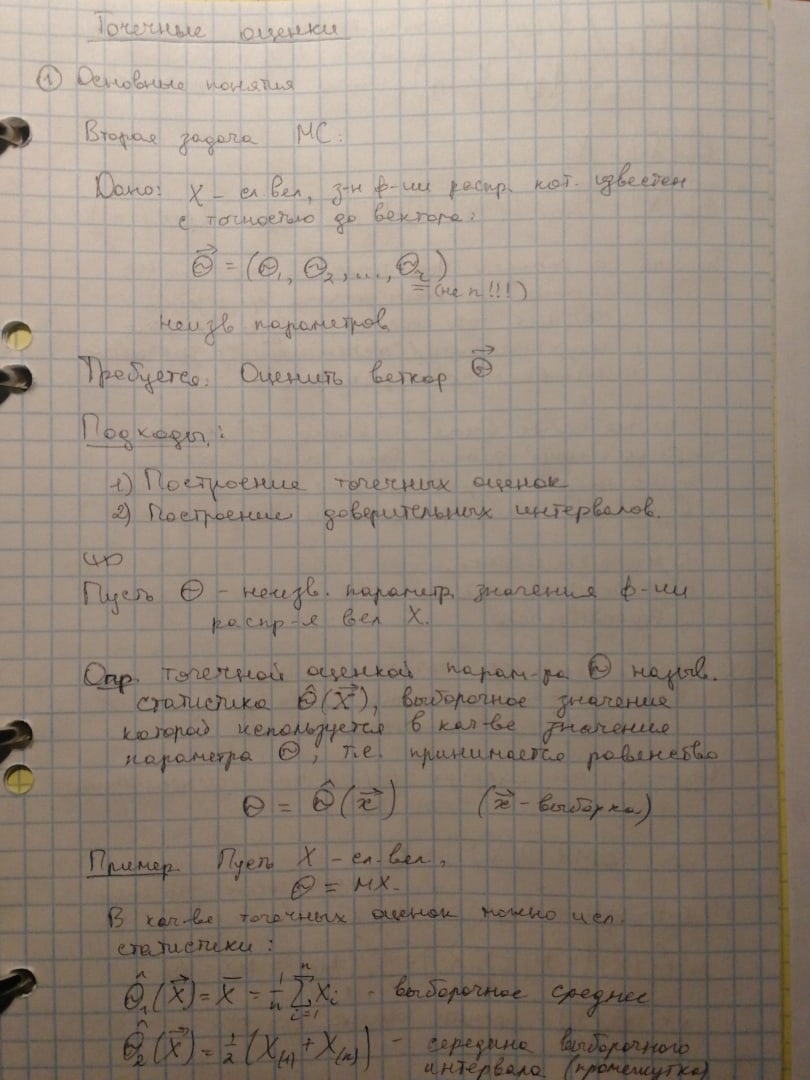 Точечные оценки
① Основные понятия
Вторая задача МС:
Дано: X – сл. вел, з-н ф-ии распр. кот. известен
с точностью до вектора:
Θ⃗ = (Θ₁, Θ₂, ..., Θᵣ)
(не n!!!)
неизв параметров
Требуется: Оценить веткор Θ⃗
Подходы:
1) Построение точечных оценок
2) Построение доверительных интервалов.
Пусть Θ – неизв. параметр значения ф-ии
распр-я вел X.
Опр. точечной оценкой парам-ра Θ назыв.
статистика Θ̂(X⃗), выборочное значение
которой используется в кач-ве значение
параметра Θ, т.е. принимается равенство
Θ = Θ̂(x⃗) (x⃗ – выборка)
Пример. Пусть X – сл. вел.,
Θ = MX.
В кач-ве точечных оценок можно исп.
статистики:
Θ̂₁(X⃗) = X̄ = 1/n ∑ᵢ₌₁ⁿ Xᵢ – выборочное среднее
Θ̂₂(X⃗) = 1/2 (X₍₁₎ + X₍ₙ₎) – середина выборочного
интервала (промежутка)